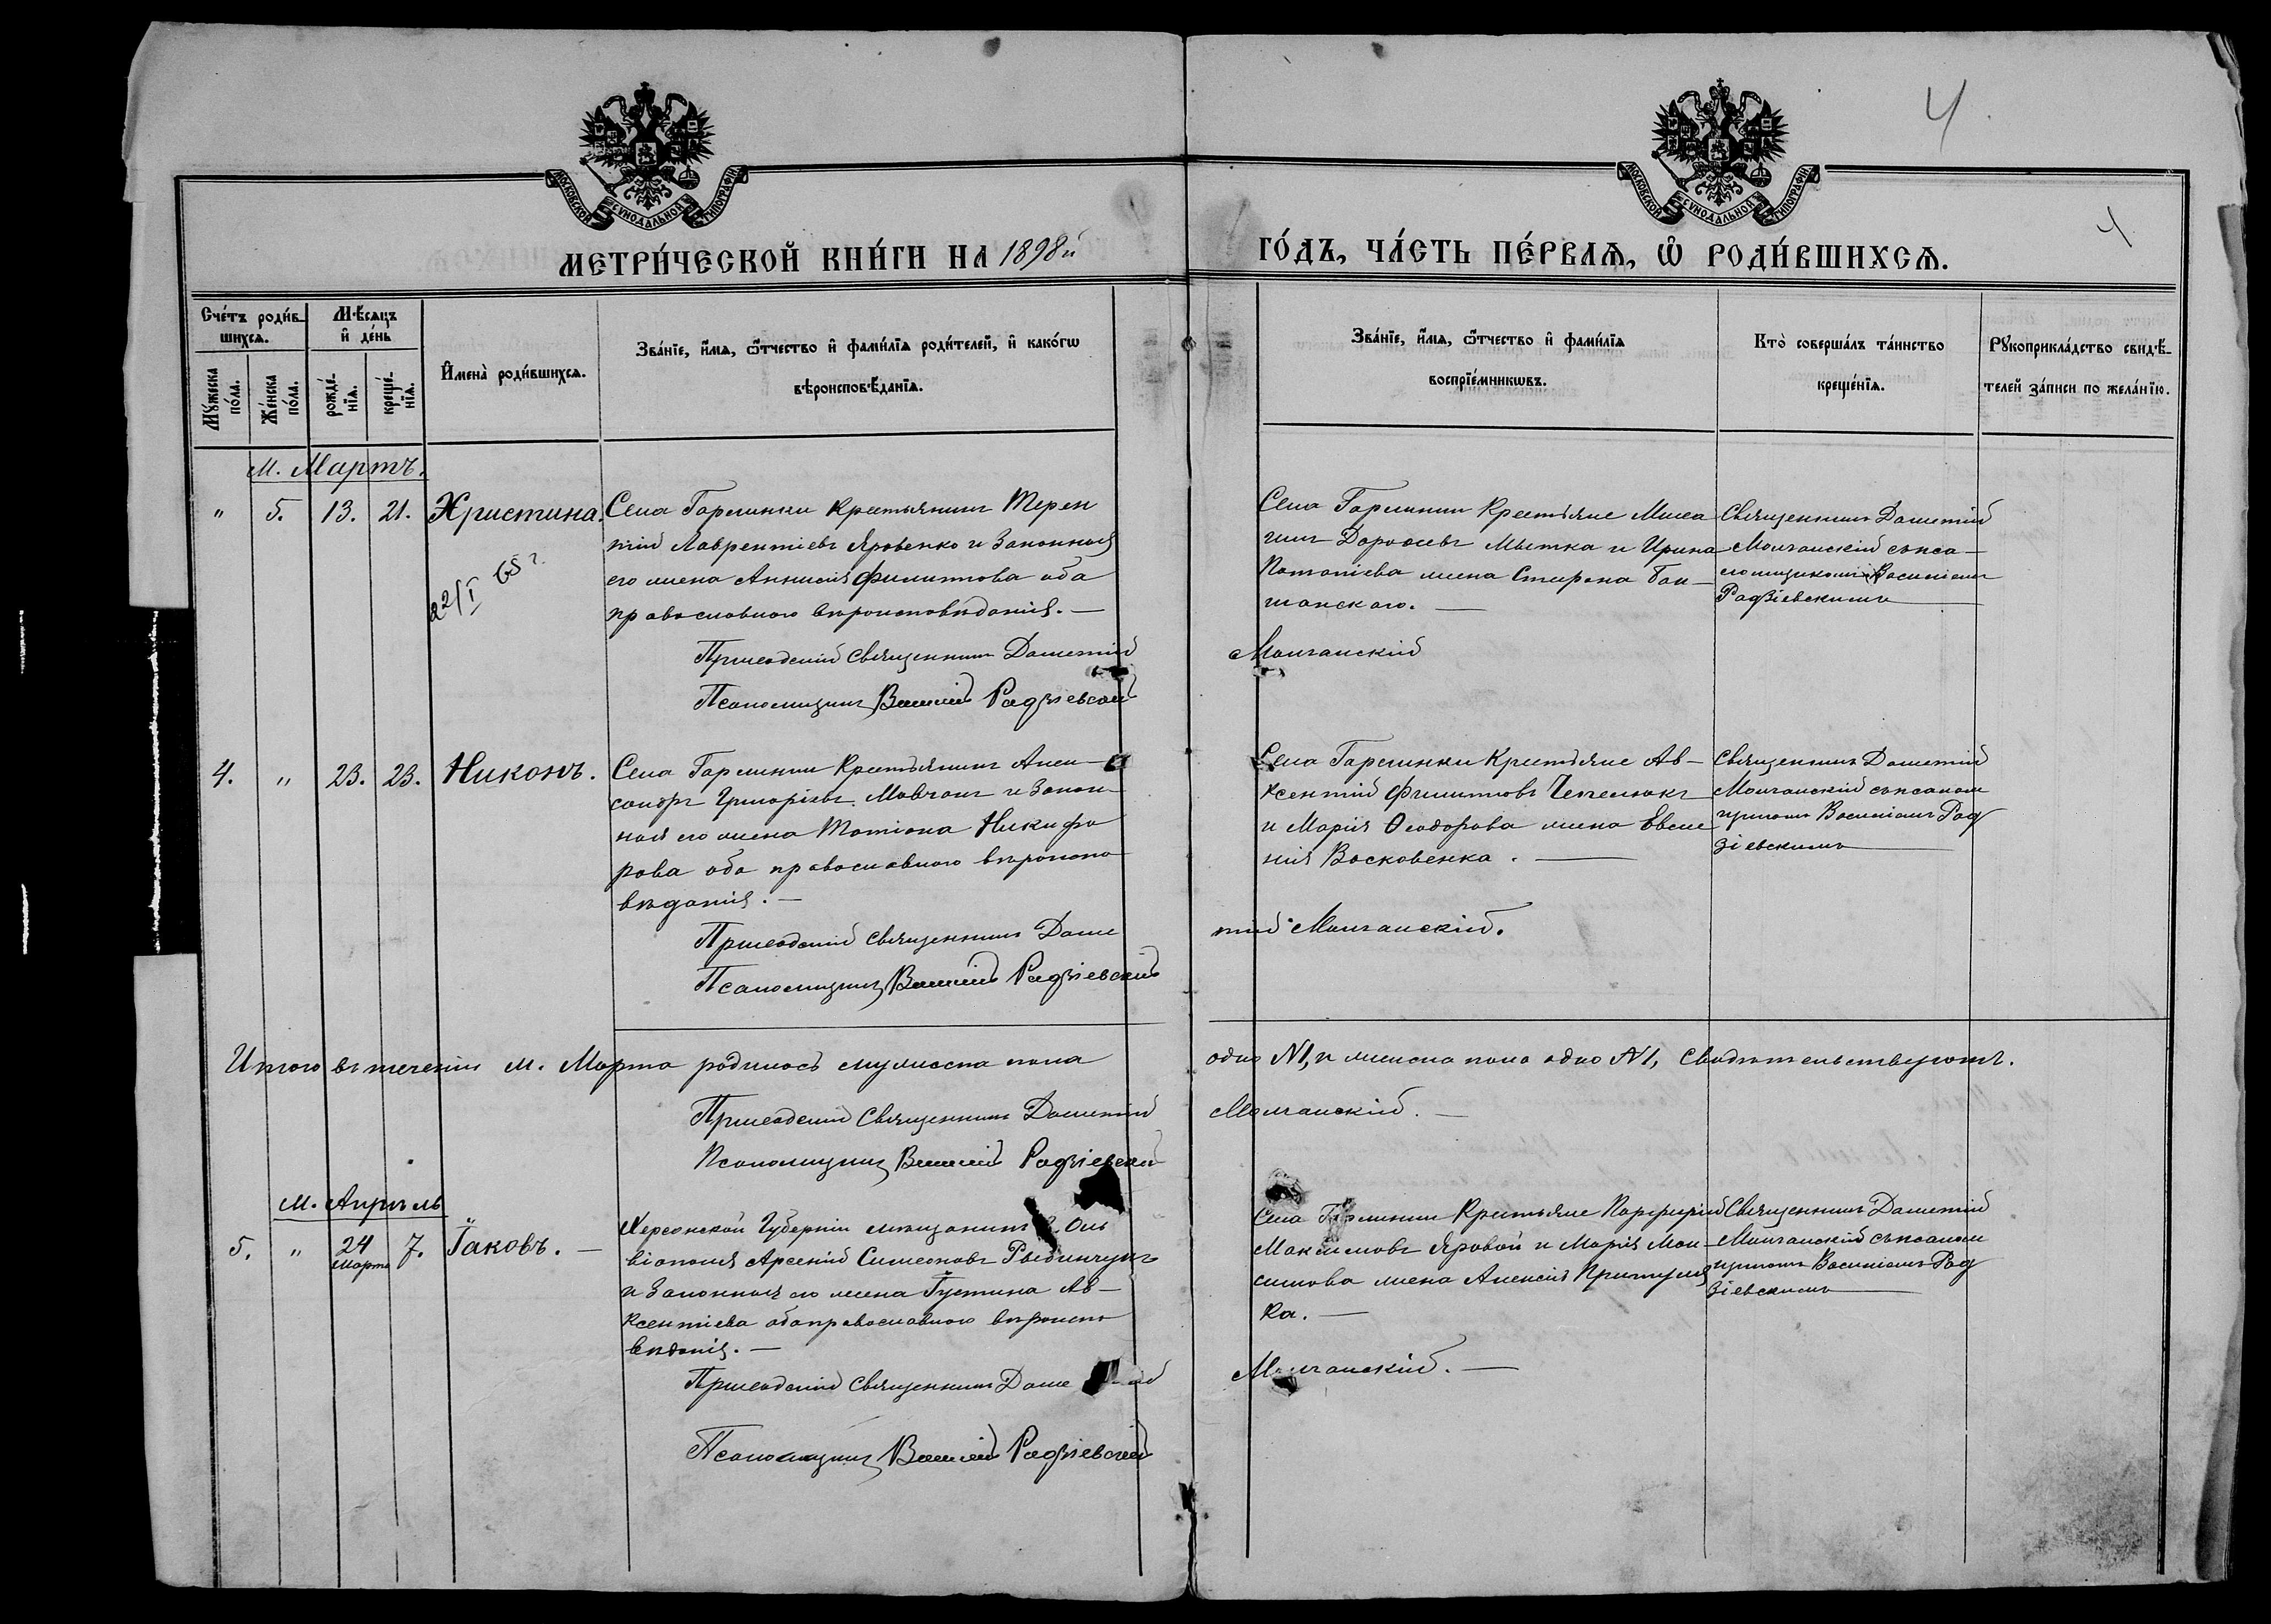 4.
4
МОСКОВСКОЙ СѴНОДАЛЬНОЙ ТИПОГРАФІИ
МОСКОВСКОЙ СѴНОДАЛЬНОЙ ТИПОГРАФІИ
МЕТРИ́ЧЕСКОЙ КНИ́ГИ НА 1898й ГО́ДЪ, ЧА́СТЬ ПЕ́РВАѦ, Ѡ҆ РОДИ́ВШИХСѦ.
Сче́тъ роди́в-
шихсѧ.
Мꙋ́жеска по́ла.
Же́нска по́ла.
М́ѣсѧцъ
и҆ де́нь
рожде́-
нїѧ.
креще́-
нїѧ.
И҆мена̀ роди́вшихсѧ.
Зва́нїе, и҆́мѧ, ѻ҆́тчество и҆ фами́лїѧ роди́телей, и҆ како́гѡ
вѣроисповѣ́данїѧ.
Зва́нїе, и҆́мѧ, ѻ҆́тчество и҆ фами́лїѧ
воспрїе́мникѡвъ.
Кто̀ соверша́лъ та́инство
креще́нїѧ.
Рꙋкоприкла́дство свидѣ́-
телей за́писи по жела́нїю.
М. Мартъ.
" 5. 13. 21. Христина.
22/I 65 г.
Села Гарминки Крестьянинъ Терен
тій Лаврентіевъ Яровенко и законная
его жена Анисія Филиппова оба
православного вѣроисповѣданія. —
Приходскій Священникъ Дометій
Псаломщикъ Василій Радзіевскій
Села Крестьяне
Дорофеевъ Мытка и Ирина
Потапіева жена Спиридона
Молчанскій
Священникъ Дометій
Молчанскій съ пса-
ломщикомъ Василіемъ
Радзіевскимъ
4. " 23. 23. Никонъ.
Села Крестьянинъ Алек-
сандръ Григоріевъ Мовчанъ и закон-
ная его жена Татіана Никифо
рова оба православного вѣроиспо
вѣданія. —
Приходскій Священникъ Доме
Псаломщикъ Василій Радзіевскій
Села Крестьяне Ав-
ксентій Филипповъ Чепелюкъ
и Марія Ѳеодорова жена Евге
нія Восковенка. —
тій Молчанскій.
Священникъ Дометій
Молчанскій съ псалом
щикомъ Василіемъ Рад
зіевскимъ
Итого въ теченіи м. Марта родилось мужеска пола
одно №1, и женска пола одно №1, Свидѣтельствуютъ.
Приходскій Священникъ Дометій
Молчанскій. —
Псаломщикъ Василій Радзіевскій
М. Апрѣль
5. " 24 Марта 7. Іаковъ. —
Херсонской Губерніи мѣщанинъ Оль
віополя Арсеній Симеоновъ
и законная его жена Іустина Ав-
ксентіева оба православного вѣроиспо
вѣданія. —
Приходскій Священникъ Доме
Псаломщикъ Василій Радзіевскій
Села Крестьяне Порфирій
Максимовъ Яровой и Марія Мак-
симова жена Алексія
ка. —
Молчанскій. —
Священникъ Дометій
Молчанскій съ псалом
щикомъ Василіемъ Рад
зіевскимъ